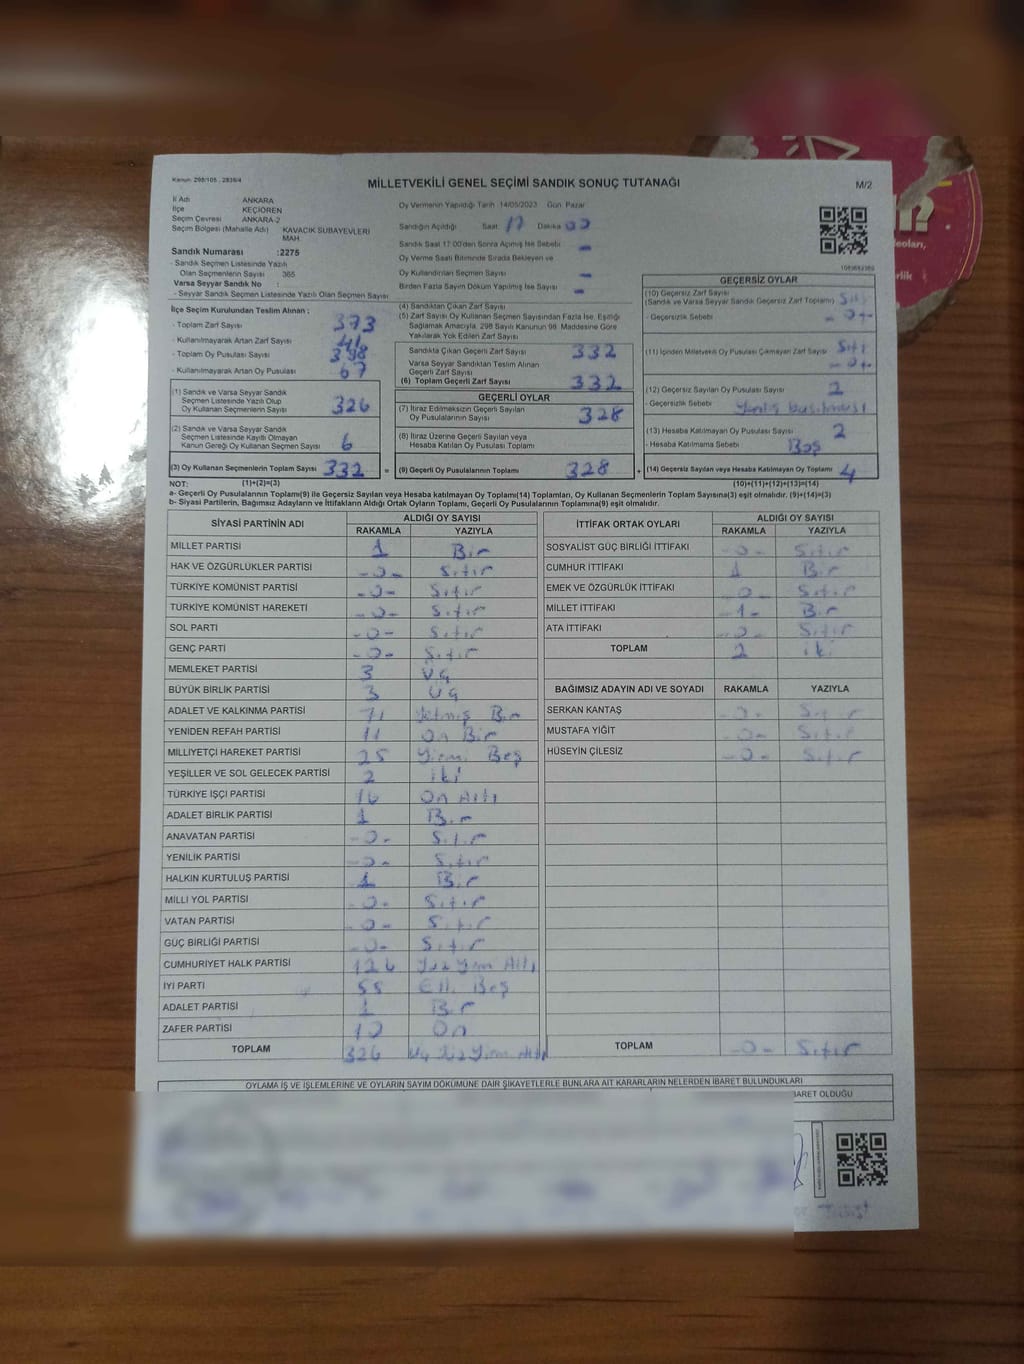 Kanun: 298/105 , 2839/4
MİLLETVEKİLİ GENEL SEÇİMİ SANDIK SONUÇ TUTANAĞI
M/2
İl Adı ANKARA
İlçe KEÇİÖREN
Seçim Çevresi ANKARA-2
Seçim Bölgesi (Mahalle Adı) KAVACIK SUBAYEVLERİ MAH.
Sandık Numarası :2275
- Sandık Seçmen Listesinde Yazılı
Olan Seçmenlerin Sayısı 365
Varsa Seyyar Sandık No :
- Seyyar Sandık Seçmen Listesinde Yazılı Olan Seçmen Sayısı
Oy Vermenin Yapıldığı Tarih 14/05/2023 Gün Pazar
Sandığın Açıldığı Saat 17 Dakika 00
Sandık Saat 17:00'den Sonra Açılmış İse Sebebi -
Oy Verme Saati Bitiminde Sırada Bekleyen ve
Oy Kullandırılan Seçmen Sayısı -
Birden Fazla Sayım Döküm Yapılmış İse Sayısı -
İlçe Seçim Kurulundan Teslim Alınan :
- Toplam Zarf Sayısı 373
- Kullanılmayarak Artan Zarf Sayısı 41
- Toplam Oy Pusulası Sayısı 398
- Kullanılmayarak Artan Oy Pusulası 67
(1) Sandık ve Varsa Seyyar Sandık
Seçmen Listesinde Yazılı Olup
Oy Kullanan Seçmenlerin Sayısı 326
(2) Sandık ve Varsa Seyyar Sandık
Seçmen Listesinde Kayıtlı Olmayan
Kanun Gereği Oy Kullanan Seçmen Sayısı 6
(3) Oy Kullanan Seçmenlerin Toplam Sayısı 332 =
(4) Sandıktan Çıkan Zarf Sayısı
(5) Zarf Sayısı Oy Kullanan Seçmen Sayısından Fazla İse, Eşitliği
Sağlamak Amacıyla, 298 Sayılı Kanunun 98. Maddesine Göre
Yakılarak Yok Edilen Zarf Sayısı
Sandıkta Çıkan Geçerli Zarf Sayısı 332
Varsa Seyyar Sandıktan Teslim Alınan
Geçerli Zarf Sayısı
(6) Toplam Geçerli Zarf Sayısı 332
GEÇERLİ OYLAR
(7) İtiraz Edilmeksizin Geçerli Sayılan
Oy Pusulalarının Sayısı 328
(8) İtiraz Üzerine Geçerli Sayılan veya
Hesaba Katılan Oy Pusulası Toplamı
(9) Geçerli Oy Pusulalarının Toplamı 328 +
1083682369
GEÇERSİZ OYLAR
(10) Geçersiz Zarf Sayısı
(Sandık ve Varsa Seyyar Sandık Geçersiz Zarf Toplamı)
- Geçersizlik Sebebi
(11) İçinden Milletvekili Oy Pusulası Çıkmayan Zarf Sayısı Sıfır
(12) Geçersiz Sayılan Oy Pusulası Sayısı 2
- Geçersizlik Sebebi
(13) Hesaba Katılmayan Oy Pusulası Sayısı 2
- Hesaba Katılmama Sebebi Boş
(14) Geçersiz Sayılan veya Hesaba Katılmayan Oy Toplamı 4
NOT: (1)+(2)=(3) (10)+(11)+(12)+(13)=(14)
a- Geçerli Oy Pusulalarının Toplamı(9) ile Geçersiz Sayılan veya Hesaba katılmayan Oy Toplamı(14) Toplamları, Oy Kullanan Seçmenlerin Toplam Sayısına(3) eşit olmalıdır. (9)+(14)=(3)
b- Siyasi Partilerin, Bağımsız Adayların ve İttifakların Aldığı Ortak Oyların Toplamı, Geçerli Oy Pusulalarının Toplamına(9) eşit olmalıdır.
SİYASİ PARTİNİN ADI ALDIĞI OY SAYISI
RAKAMLA YAZIYLA
MİLLET PARTİSİ 1 Bir
HAK VE ÖZGÜRLÜKLER PARTİSİ -0- Sıfır
TÜRKİYE KOMÜNİST PARTİSİ -0- Sıfır
TÜRKİYE KOMÜNİST HAREKETİ -0- Sıfır
SOL PARTİ -0- Sıfır
GENÇ PARTİ -0- Sıfır
MEMLEKET PARTİSİ 3 Üç
BÜYÜK BİRLİK PARTİSİ 3 Üç
ADALET VE KALKINMA PARTİSİ 71 Yetmiş Bir
YENİDEN REFAH PARTİSİ 11 On Bir
MİLLİYETÇİ HAREKET PARTİSİ 25 Yirmi Beş
YEŞİLLER VE SOL GELECEK PARTİSİ 2 iki
TÜRKİYE İŞÇİ PARTİSİ 16 On Altı
ADALET BİRLİK PARTİSİ 1 Bir
ANAVATAN PARTİSİ -0- Sıfır
YENİLİK PARTİSİ -0- Sıfır
HALKIN KURTULUŞ PARTİSİ 1 Bir
MİLLİ YOL PARTİSİ -0- Sıfır
VATAN PARTİSİ -0- Sıfır
GÜÇ BİRLİĞİ PARTİSİ -0- Sıfır
CUMHURİYET HALK PARTİSİ 126 Yüz Yirmi Altı
İYİ PARTİ 55 Elli Beş
ADALET PARTİSİ 1 Bir
ZAFER PARTİSİ 10 On
TOPLAM 326 Üç Yüz Yirmi Altı
İTTİFAK ORTAK OYLARI ALDIĞI OY SAYISI
RAKAMLA YAZIYLA
SOSYALİST GÜÇ BİRLİĞİ İTTİFAKI -0- Sıfır
CUMHUR İTTİFAKI 1 Bir
EMEK VE ÖZGÜRLÜK İTTİFAKI -0- Sıfır
MİLLET İTTİFAKI -1- Bir
ATA İTTİFAKI -0- Sıfır
TOPLAM 2 iki
BAĞIMSIZ ADAYIN ADI VE SOYADI RAKAMLA YAZIYLA
SERKAN KANTAŞ -0- Sıfır
MUSTAFA YİĞİT -0- Sıfır
HÜSEYİN ÇİLESİZ -0- Sıfır
TOPLAM -0- Sıfır
OYLAMA İŞ VE İŞLEMLERİNE VE OYLARIN SAYIM DÖKÜMÜNE DAİR ŞİKAYETLERLE BUNLARA AİT KARARLARIN NELERDEN İBARET BULUNDUKLARI
BARET OLDUĞU